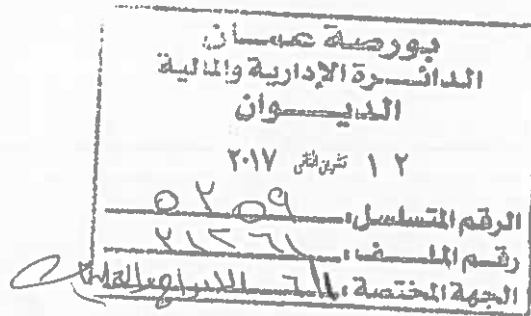 بورصة عمان
الدائرة الإدارية والمالية
الديوان
١٢ تشرين الثاني ٢٠١٧
الرقم المتسلسل: ٥٢٥٩
رقم الملف:
الجهة المختصة: